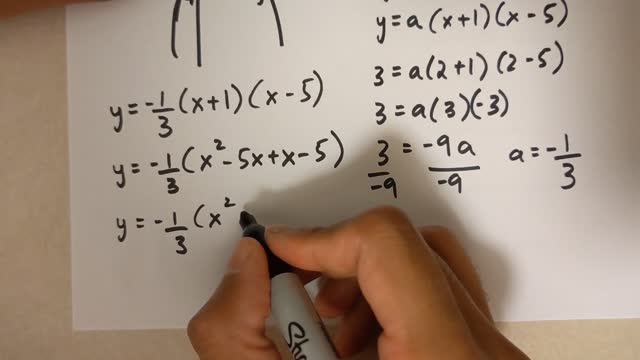 y = a(x+1)(x-5)
3 = a(2+1)(2-5)
3 = a(3)(-3)
3/-9 = -9a/-9 a = -1/3
y = -1/3(x+1)(x-5)
y = -1/3(x² - 5x + x - 5)
y = -1/3(x²